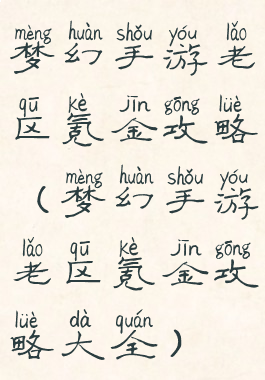 mèng huàn shǒu yóu lǎo
梦幻手游老
qū kè jīn gōng lüè
区氪金攻略
mèng huàn shǒu yóu
(梦幻手游
lǎo qū kè jīn gōng
老区氪金攻
lüè dà quán
略大全)